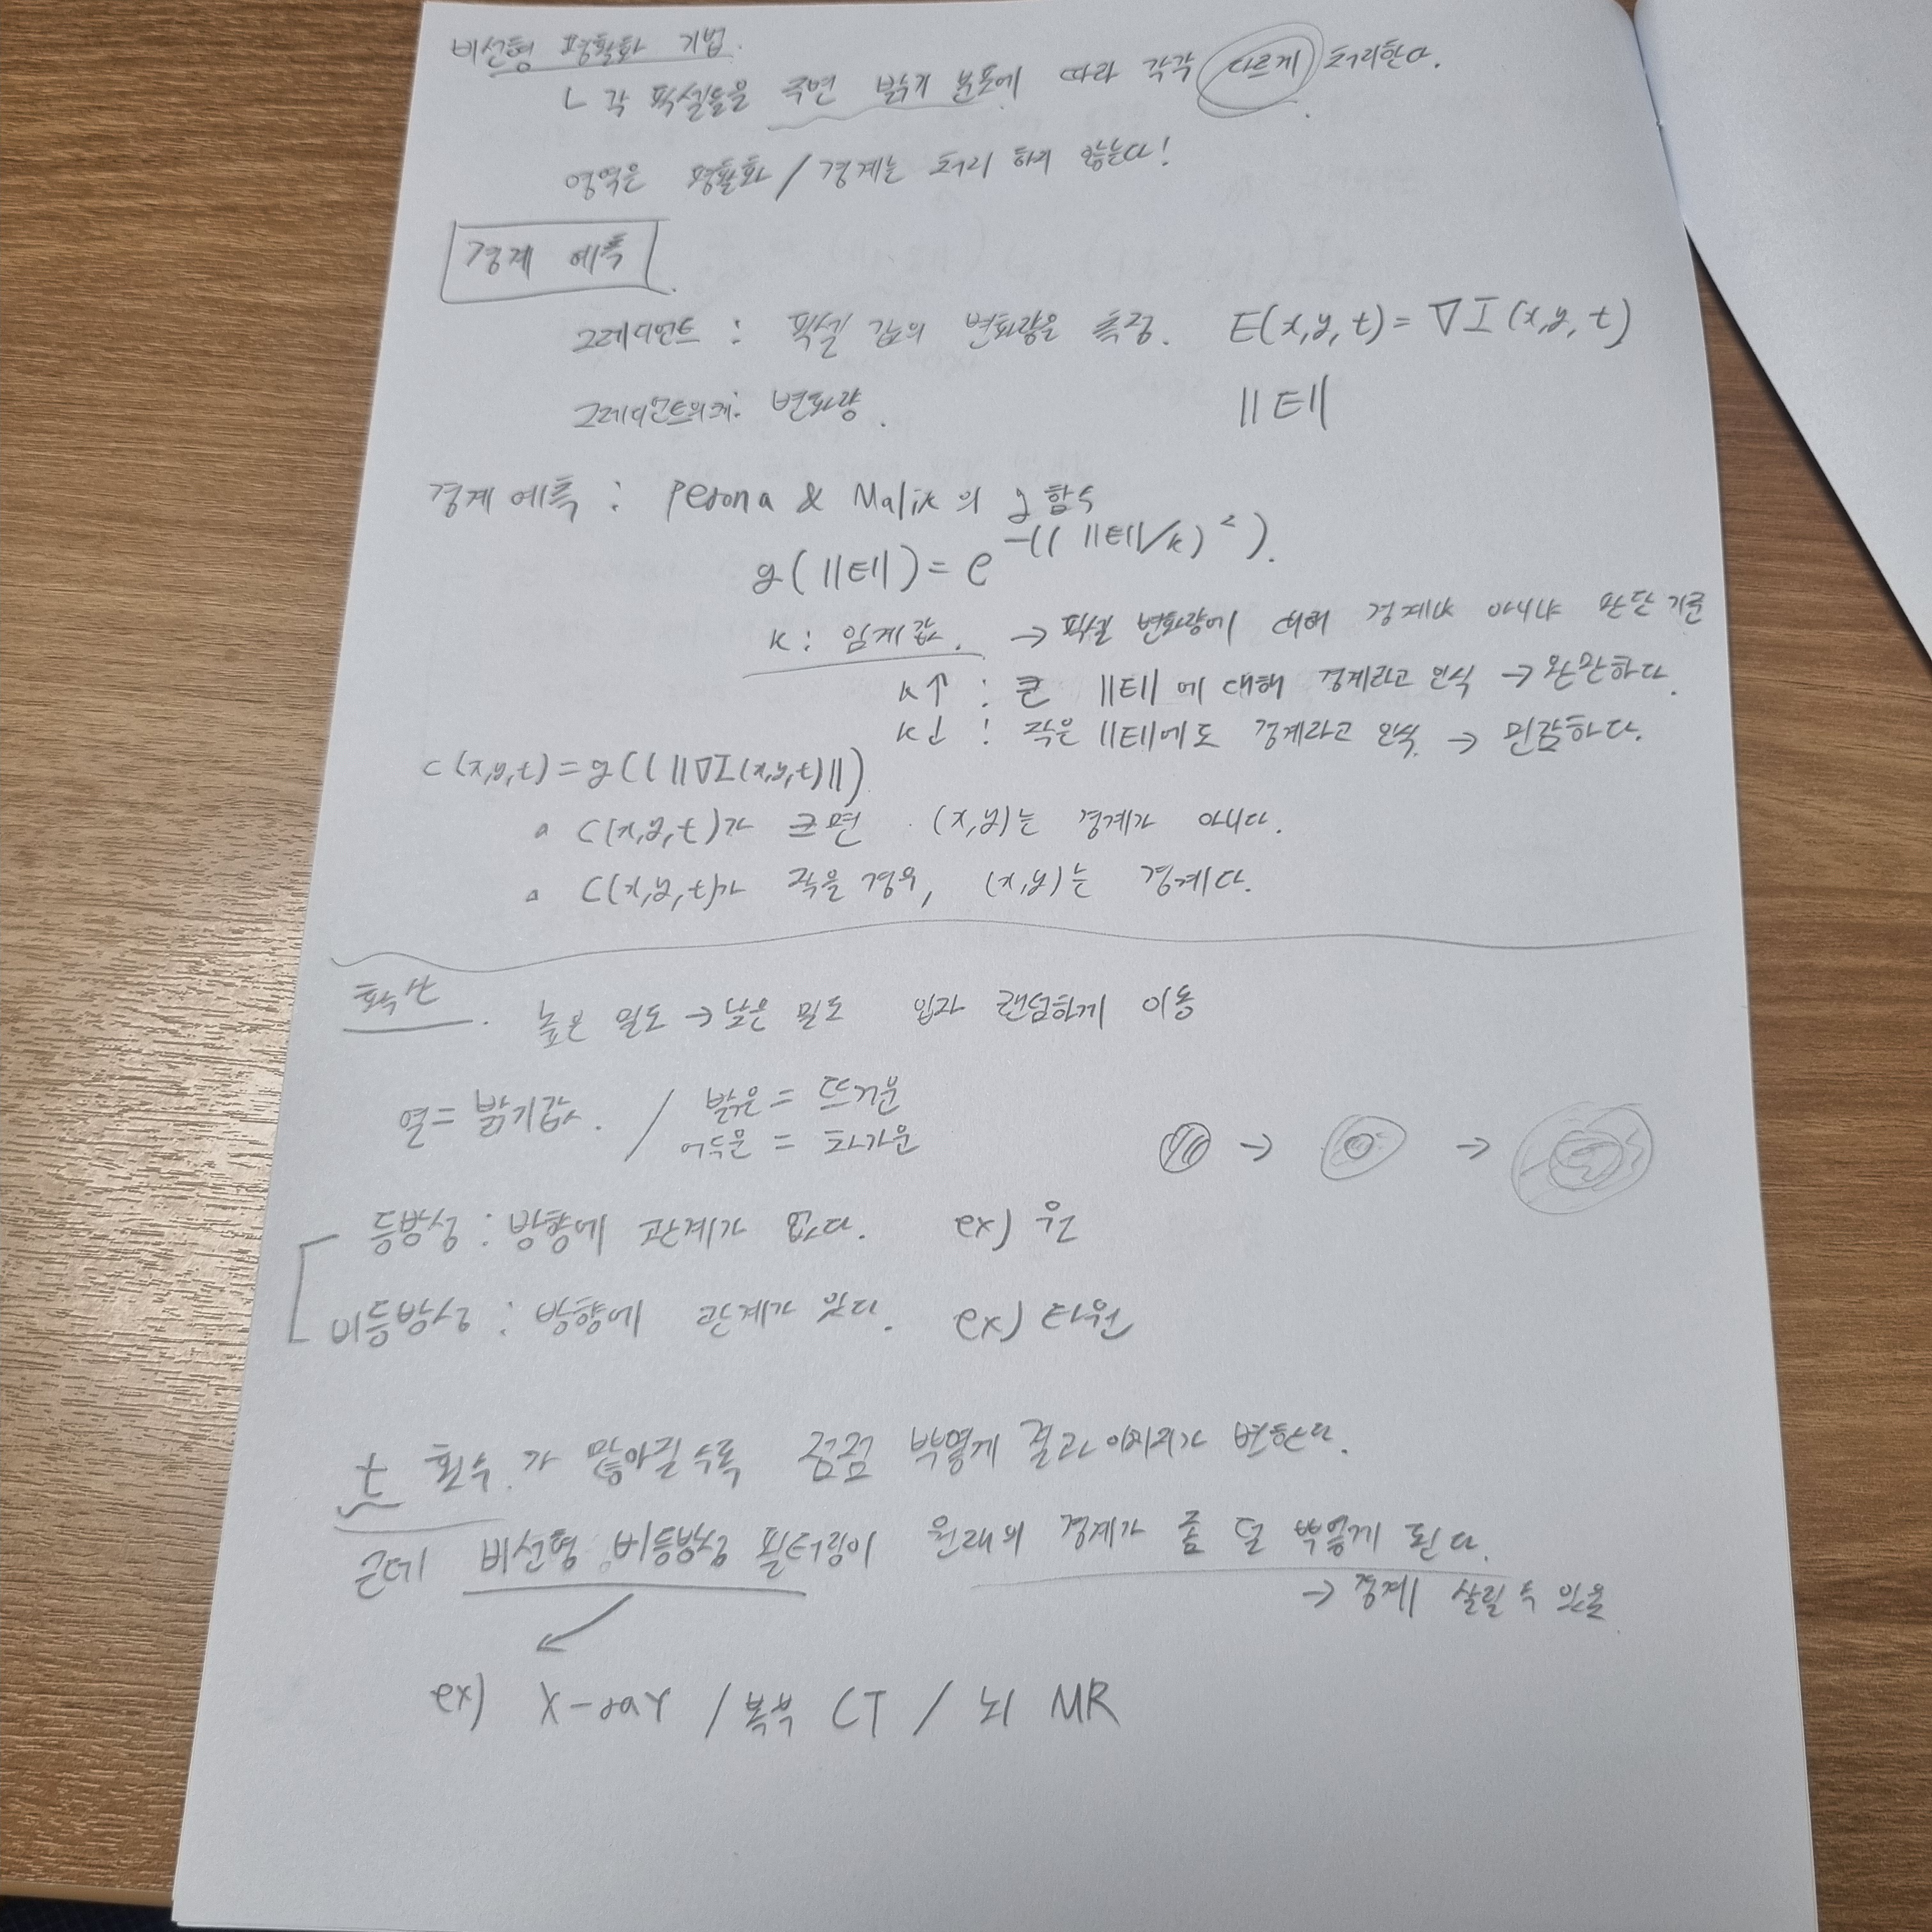 비선형 평활화 기법.
ㄴ 각 픽셀들을 주변 밝기 분포에 따라 각각 다르게 처리한다.
영역은 평활화 / 경계는 처리 하지 않는다!
경계 예측
그레디언트 : 픽셀 값의 변화량을 측정. E(x,y,t) = ∇I(x,y,t)
그레디언트의 크기: 변화량. ||E||
경계 예측 : Perona & Malik 의 g 함수
g(||E||) = e^-((||E||/k)^2).
k : 임계값. → 픽셀 변화량에 대해 경계냐 아니냐 판단 기준
k↑ : 큰 ||E||에 대해 경계라고 인식 → 완만하다.
k↓ : 작은 ||E||에도 경계라고 인식. → 민감하다.
C(x,y,t) = g((||∇I(x,y,t)||)
▫ C(x,y,t)가 크면 (x,y)는 경계가 아니다.
▫ C(x,y,t)가 작을 경우, (x,y)는 경계다.
확산. 높은 밀도 → 낮은 밀도 입자 랜덤하게 이동
열 = 밝기값. / 밝은 = 뜨거운
어두운 = 차가운
등방성 : 방향에 관계가 없다. ex) 원
비등방성 : 방향에 관계가 있다. ex) 타원
t 횟수가 많아질수록 점점 뿌옇게 결과 이미지가 변한다.
근데 비선형 비등방성 필터링이 원래의 경계가 좀 덜 뿌옇게 된다.
→ 경계 살릴 수 있음
ex) X-ray / 복부 CT / 뇌 MR